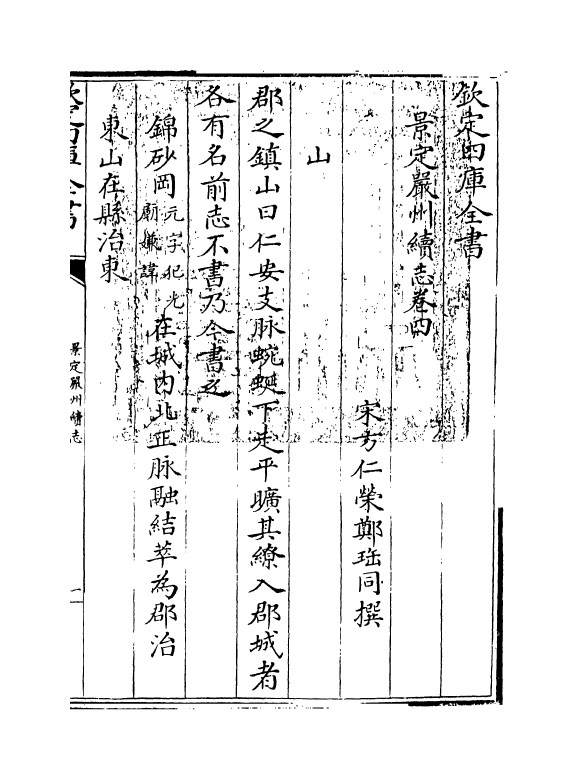 欽定四庫全書
景定嚴州續志卷四
宋方仁榮鄭珤同撰
山
郡之鎮山曰仁安支脉蜿蜒下走平曠其繚入郡城者
各有名前志不書乃今書之
錦砂岡元字犯光廟嫌諱在城内北正脉融結萃為郡治
東山在縣治東
景定嚴州續志
一